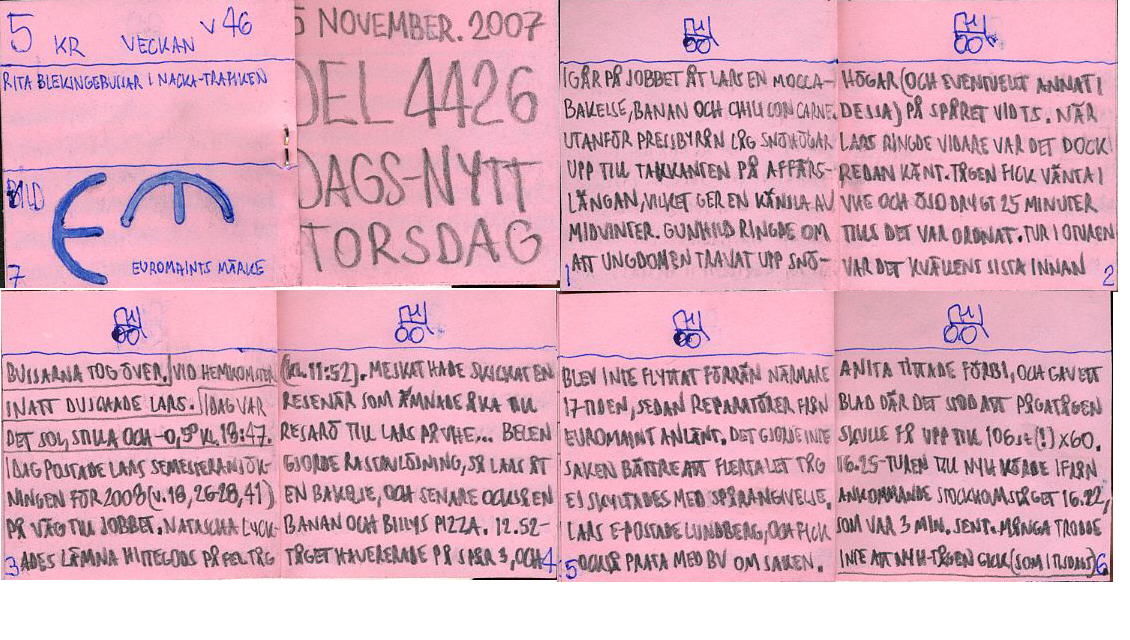 5 KR VECKAN V 46
RITA BLEKINGEBUSSAR I NACKA-TRAFIKEN
BILD
EUROMAINTS MÄRKE
7
5 NOVEMBER. 2007
DEL 4426
DAGS-NYTT
TORSDAG
IGÅR PÅ JOBBET ÅT LARS EN MOCCA-
BAKELSE, BANAN OCH CHILI CON CARNE.
UTANFÖR PRESSBYRÅN LÅG SNÖHÖGAR
UPP TILL TAKKANTEN PÅ AFFÄRS-
LÄNGAN, VILKET GER EN KÄNSLA AV
MIDVINTER. GUNHILD RINGDE OM
ATT UNGDOMEN TRAVAT UPP SNÖ-
1
HÖGAR (OCH EVENTUELLT ANNAT I
DESSA) PÅ SPÅRET VID TS. NÄR
LARS RINGDE VIDARE VAR DET DOCK
REDAN KÄNT. TÅGEN FICK VÄNTA I
VHE OCH ÖSD DRYGT 25 MINUTER
TILLS DET VAR ORDNAT. TUR I OTUREN
VAR DET KVÄLLENS SISTA INNAN
2
BUSSARNA TOG ÖVER. VID HEMKOMSTEN
INATT DUSCHADE LARS. IDAG VAR
DET SOL, STILLA OCH -0,5° KL. 18:47.
IDAG POSTADE LARS SEMESTERANSÖK-
NINGEN FÖR 2008 (v. 18, 26-28, 41)
PÅ VÄG TILL JOBBET. NATASCHA LYCK-
ADES LÄMNA HITTEGODS PÅ FEL TÅG
3
(KL. 11:52). MESKAT HADE SKICKAT EN
RESENÄR SOM ÄMNADE ÅKA TILL
RESARÖ TILL LARS PÅ VHE... BELEN
GJORDE RASTINLÖSNING, SÅ LARS ÅT
EN BAKELSE, OCH SENARE OCKSÅ EN
BANAN OCH BILLYS PIZZA. 12.52-
TÅGET HAVERERADE PÅ SPÅR 3, OCH
4
BLEV INTE FLYTTAT FÖRRÄN NÄRMARE
17-TIDEN, SEDAN REPARATÖRER FRÅN
EUROMAINT ANLÄNT. DET GJORDE INTE
SAKEN BÄTTRE ATT FLERTALET TÅG
EJ SKYLTADES MED SPÅRANGIVELSE.
LARS E-POSTADE LUNDBERG, OCH FICK
OCKSÅ PRATA MED BV OM SAKEN.
5
ANITA TITTADE FÖRBI, OCH GAV ETT
BLAD DÄR DET STOD ATT PÅGATÅGEN
SKULLE FÅ UPP TILL 106 st (!) X60.
16.25-TUREN TILL NYH KÖRDE IFRÅN
ANKOMMANDE STOCKHOLMSTÅGET 16.22,
SOM VAR 3 MIN. SENT. MÅNGA TRODDE
INTE ATT NYH-TÅGEN GICK (SOM I TISDAGS)
6